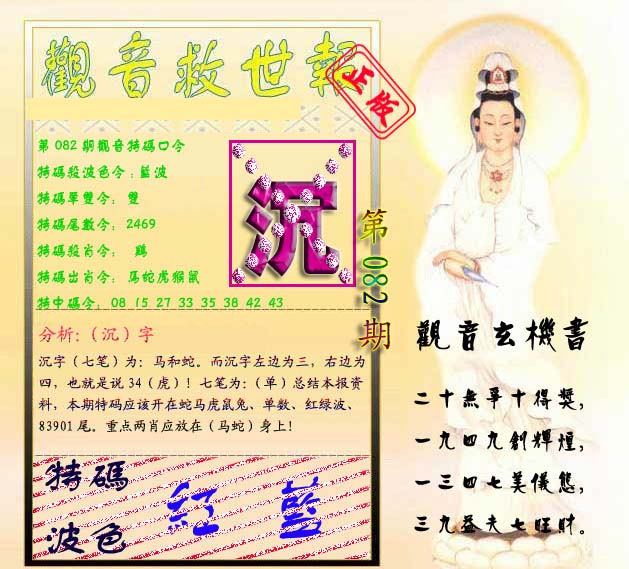 觀音救世報
正版
第082期觀音特碼口令
特碼殺波色令:藍波
特碼單雙令: 雙
特碼尾數令: 2469
特碼殺肖令: 鷄
特碼出肖令: 馬蛇虎猴鼠
特中碼令: 08 15 27 33 35 38 42 43
沉
第082期
分析:（沉）字
沉字（七笔）为：马和蛇。而沉字左边为三，右边为
四，也就是说 34（虎）！七笔为：（单）总结本报资
料，本期特码应该开在蛇马虎鼠兔、单数、红绿波、
83901 尾。重点两肖应放在（马蛇）身上！
特碼
波色
紅 藍
觀音玄機書
二十無爭十得獎,
一九四九創輝煌,
一三四七美儀態,
三九益夫七旺財。